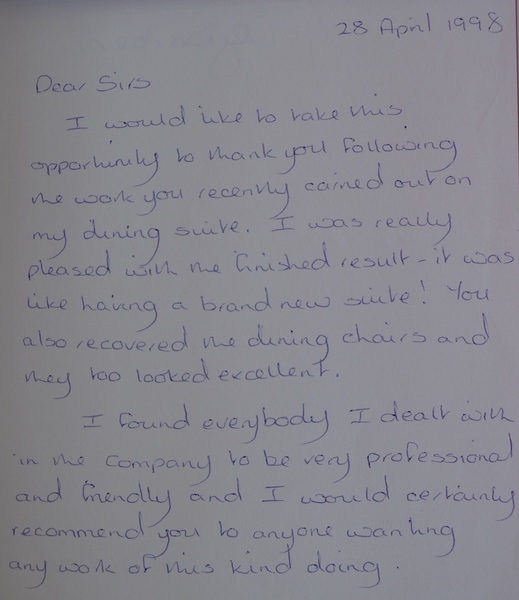 28 April 1998
Dear Sirs
I would like to take this
opportunity to thank you following
the work you recently carried out on
my dining suite. I was really
pleased with the finished result - it was
like having a brand new suite! You
also recovered the dining chairs and
they too looked excellent.
I found everybody I dealt with
in the company to be very professional
and friendly and I would certainly
recommend you to anyone wanting
any work of this kind doing.